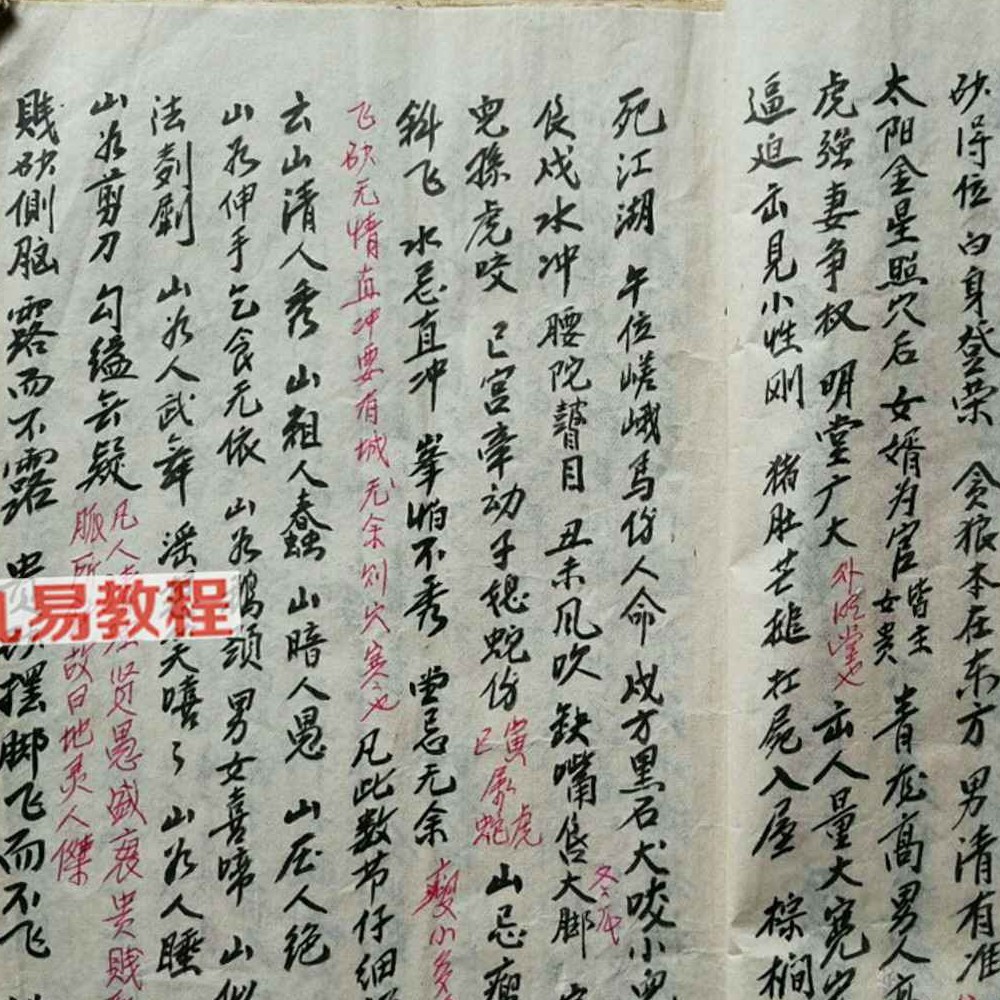 砂得位白身登荣 贪狼本在东方 男清有准
太阳金星照穴后 女婿为官皆主女贵 青龙高男人高
虎强妻争权 明堂广大 外明堂也 出人量大宽
逼迫出见小性刚 猪肚芒槌扛屍入屋 棕榈
死江湖 午位嵯峨马份人命 戌方黑石犬咬小
艮戌水冲腰院瞽目 丑未风吹缺嘴 大脚
児孫虎咬 巳宫牵动子媳蛇份 寅属虎 巳属蛇 山忌瘦
斜飞 水忌直冲 峯怕不秀 堂忌无余 瘦小
飞砂无情直冲要有城无余则穴寒也 凡此数节仔细
云山清人秀 山粗人蠢 山暗人愚 山压人绝
山如伸手乞食无依 山如鵝頭 男女喜啼 山似
法剑 山如人武舞 淫 笑嘻了 山如人睡
山如剪刀 勾 无疑 凡人 贤愚盛衰贵贱
脈 故曰地灵人傑
賤砂側脑露而不露 摆脚飞而不飞
九易教程